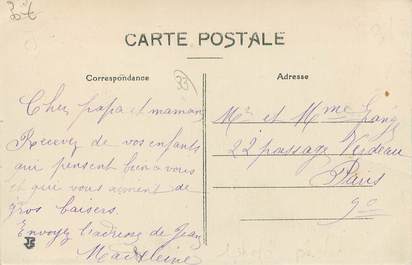 CARTE POSTALE
Correspondance
Adresse
33
Cher papa et maman
Recevez de vos enfants
qui pensent bien a vous
et qui vous aiment de
gros baisers.
Envoyez l'adresse de Jean
Madeleine
Mr et Mme
22 passage Verdeau
Paris
9e